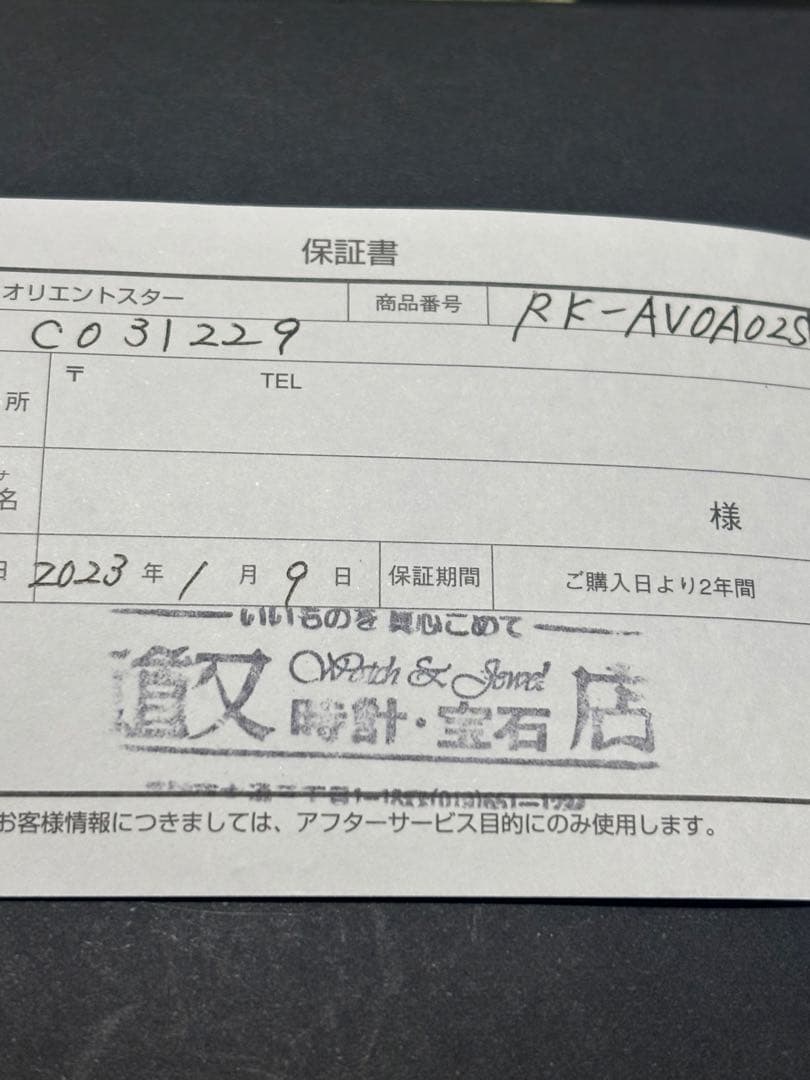 保証書
オリエントスター 商品番号 RK-AV0A02S
C031229
所 〒 TEL
名 様
日 2023 年 1 月 9 日 保証期間 ご購入日より2年間
いいものを 真心こめて
道又 Watch & Jewel 時計・宝石 店
お客様情報につきましては、アフターサービス目的にのみ使用します。